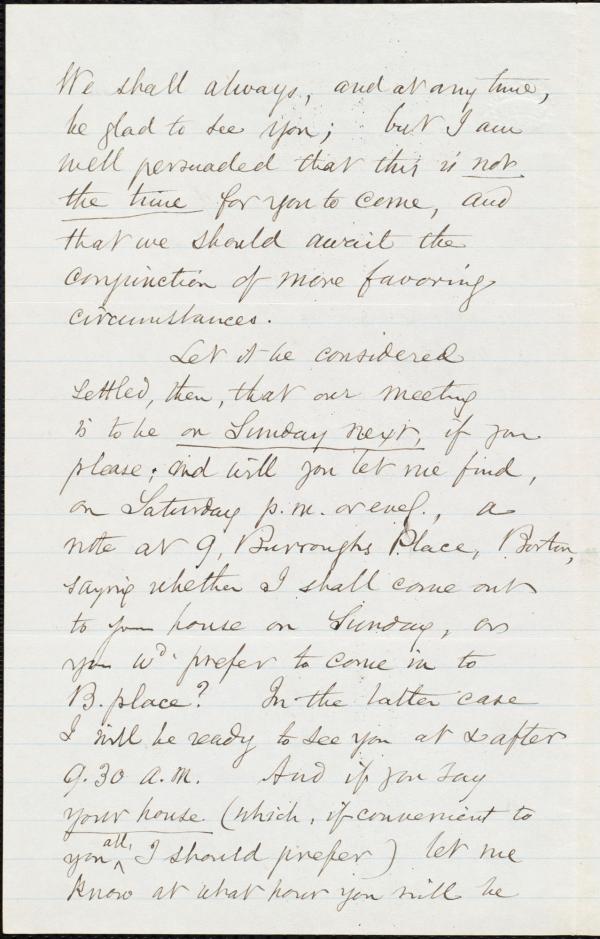 We shall always, and at any time,
be glad to see you; but I am
well persuaded that this is not
the time for you to come, and
that we should await the
conjunction of more favoring
circumstances.
Let it be considered
settled, then, that our meeting
is to be on Sunday next, if you
please; and will you let me find,
on Saturday p.m. or eveg., a
note at 9, Burroughs Place, Boston,
saying whether I shall come out
to your house on Sunday, or
you wd. prefer to come in to
B. place? In the latter case
I will be ready to see you at & after
9.30 a.m. And if you say
your house (which, if convenient to
you all, I should prefer) let me
know at what hour you will be